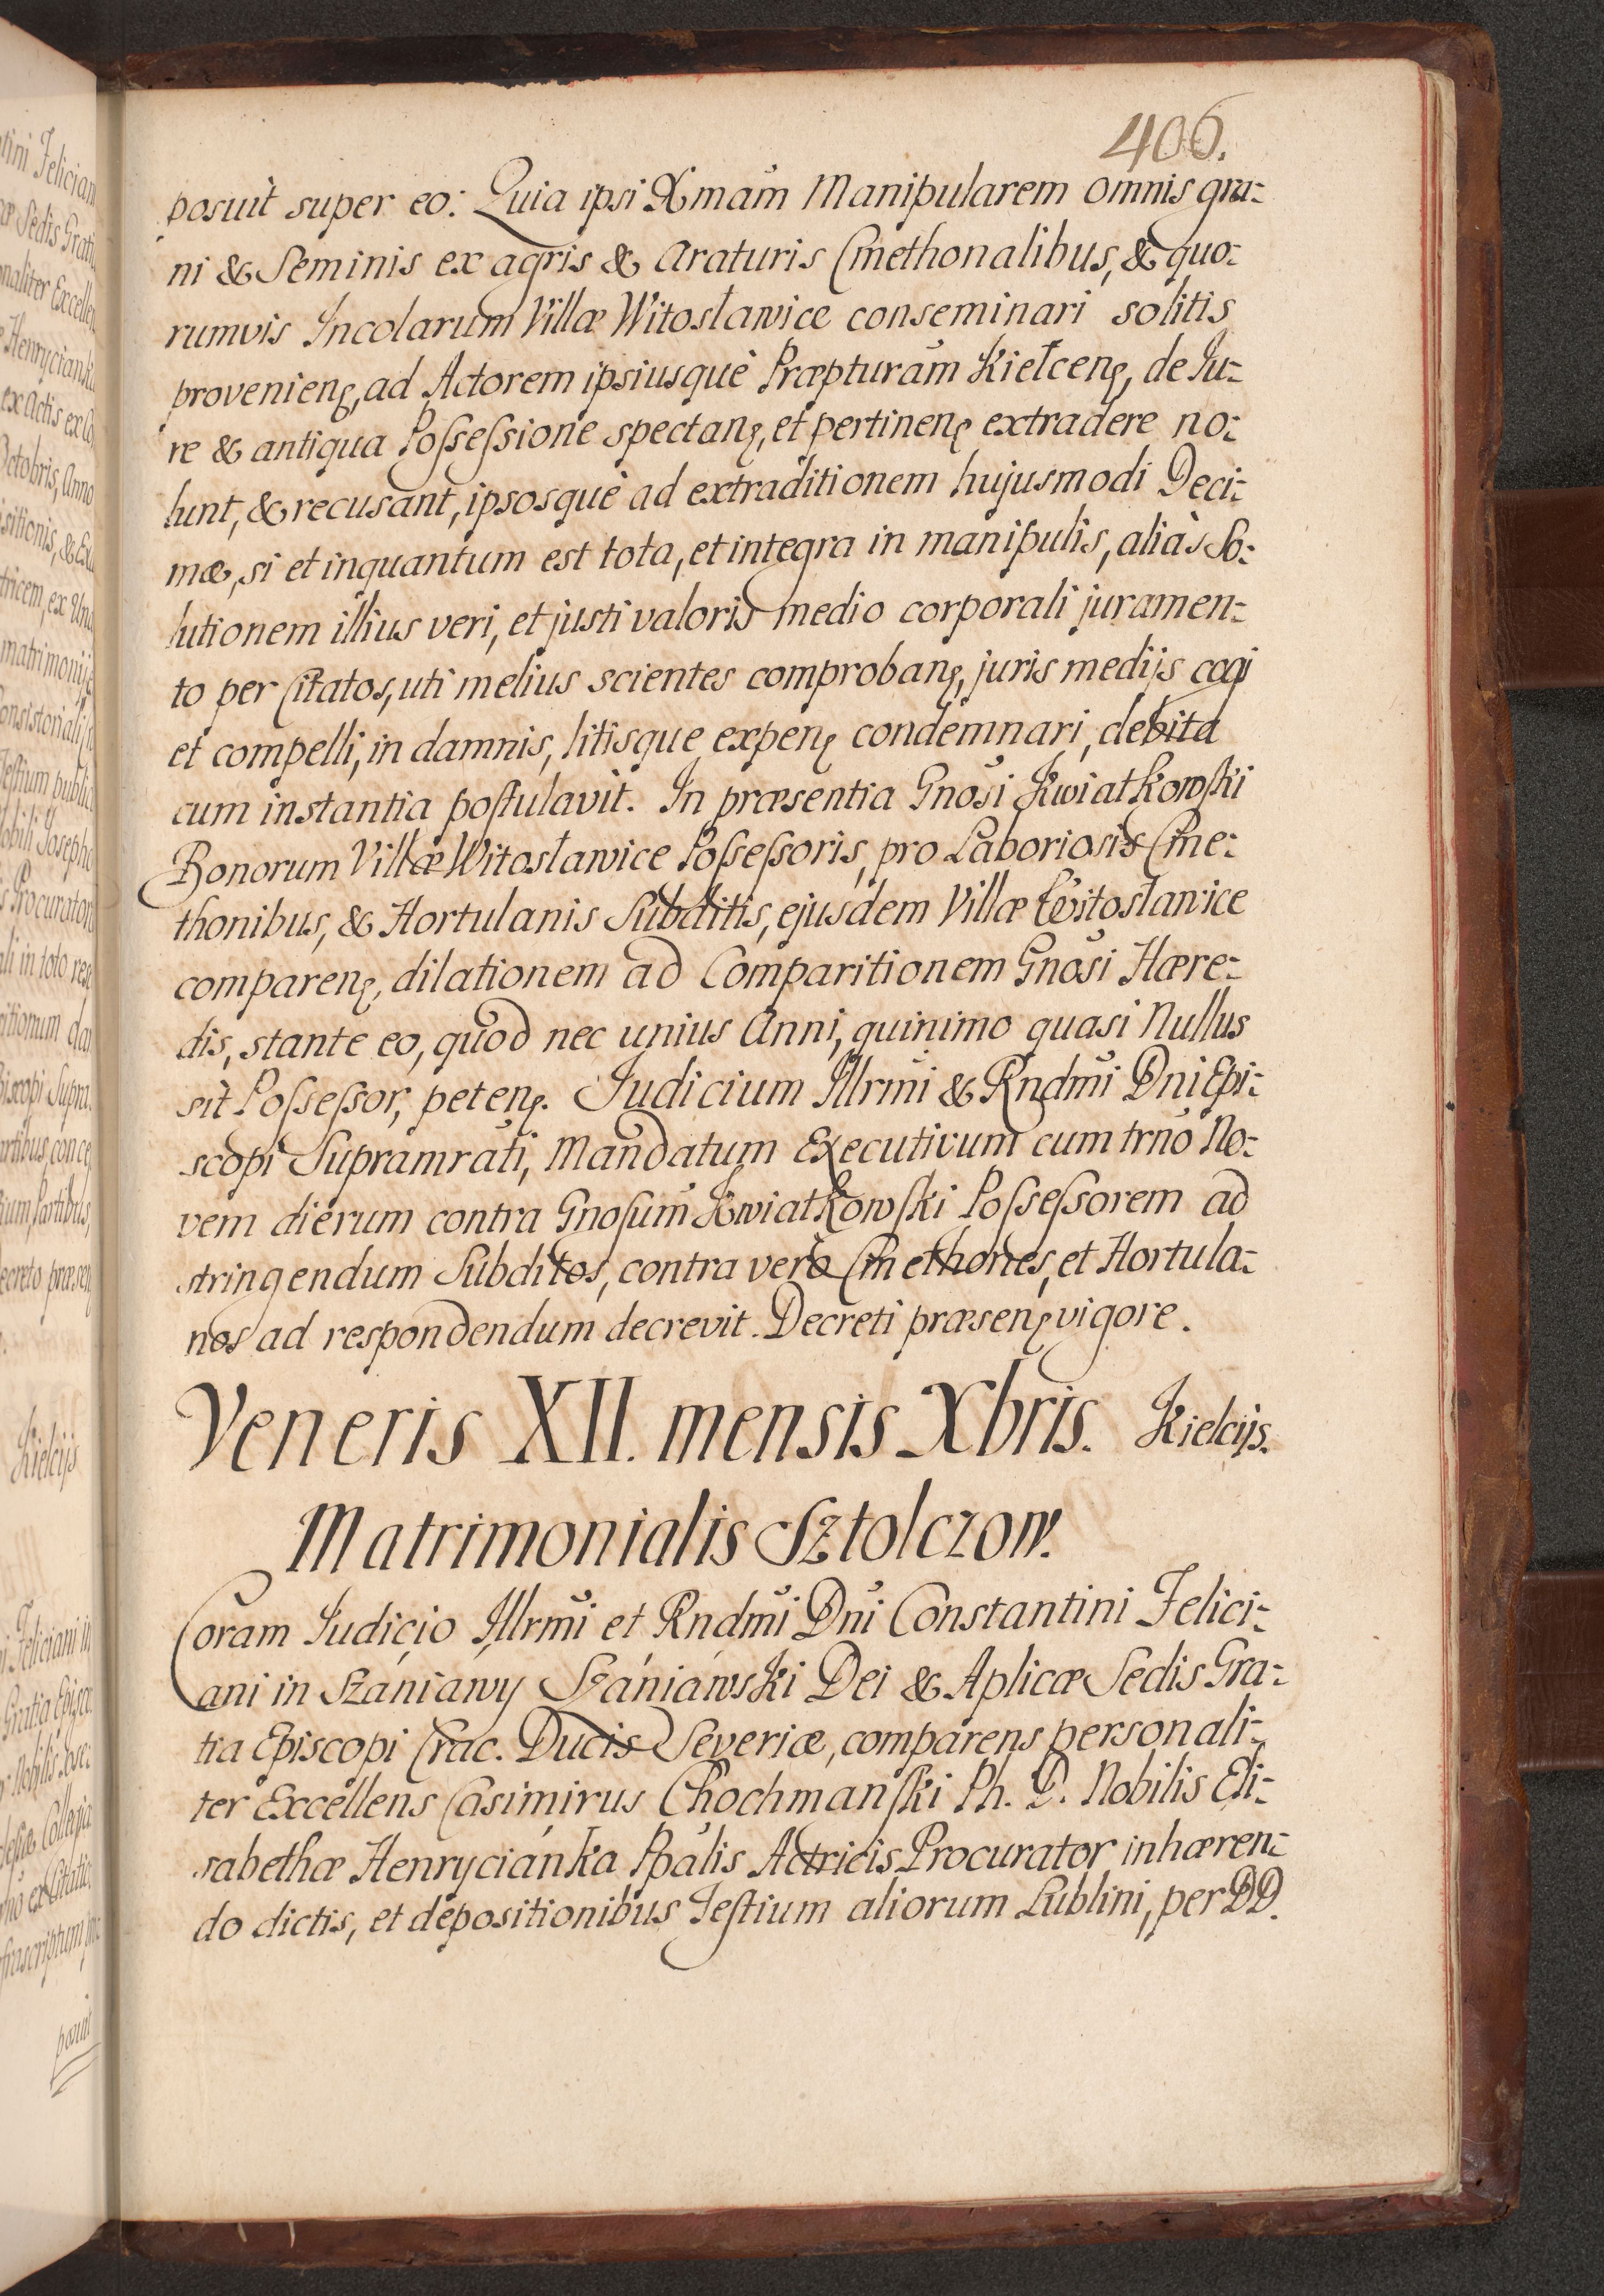 406.
posuit super eo: Quia ipsi Xmam Manipularem omnis gra-
ni & Seminis ex agris & Araturis Cmethonalibus, & quo-
rumvis Incolarum Villæ Witosławice conseminari solitis
provenienꝭ, ad Actorem ipsiusquè Præpturam Kielcenꝭ, de Ju-
re & antiqua Possessione spectanꝭ, et pertinenꝭ extradere no-
lunt, & recusant, ipsosquè ad extraditionem hujusmodi Deci-
mæ, si et inquantum est tota, et integra in manipulis, aliàs So-
lutionem illius veri, et justi valoris medio corporali juramen-
to per Citatos, uti melius scientes comprobanꝭ, juris medijs cogi
et compelli, in damnis, litisque expenꝭ condemnari, debita
cum instantia postulavit. In præsentia Gnosi Kwiatkowski
Bonorum Villæ Witosławice Possessoris, pro Laboriosis Cme-
thonibus, & Hortulanis Subditis, ejusdem Villæ Witosławice
comparenꝭ, dilationem ad Comparitionem Gnosi Hære-
dis, stante eo, quod nec unius Anni, quinimo quasi Nullus
sit Possessor, petenꝭ. Judicium Illrmi & Rndmi Dni Epi-
scopi Supramrati, Mandatum Executivum cum trno No-
vem dierum contra Gnosum Kwiatkowski Possessorem ad
stringendum Subditos, contra verò Cmethones, et Hortula-
nos ad respondendum decrevit. Decreti præsenꝭ vigore.
Veneris XII. mensis Xbris. Kielcijs.
Matrimonialis Sztolczow.
Coram Judicio Illrmi et Rndmi Dni Constantini Felici-
ani in Szániawy Szániáwski Dei & Aplicæ Sedis Gra-
tia Episcopi Crac. Ducis Severiæ, comparens personali-
ter Excellens Casimirus Chochmanski Ph. D. Nobilis Eli-
sabethæ Henryciánka Ppalis Actricis Procurator inhæren-
do dictis, et depositionibus Testium aliorum Lublini, per DD.